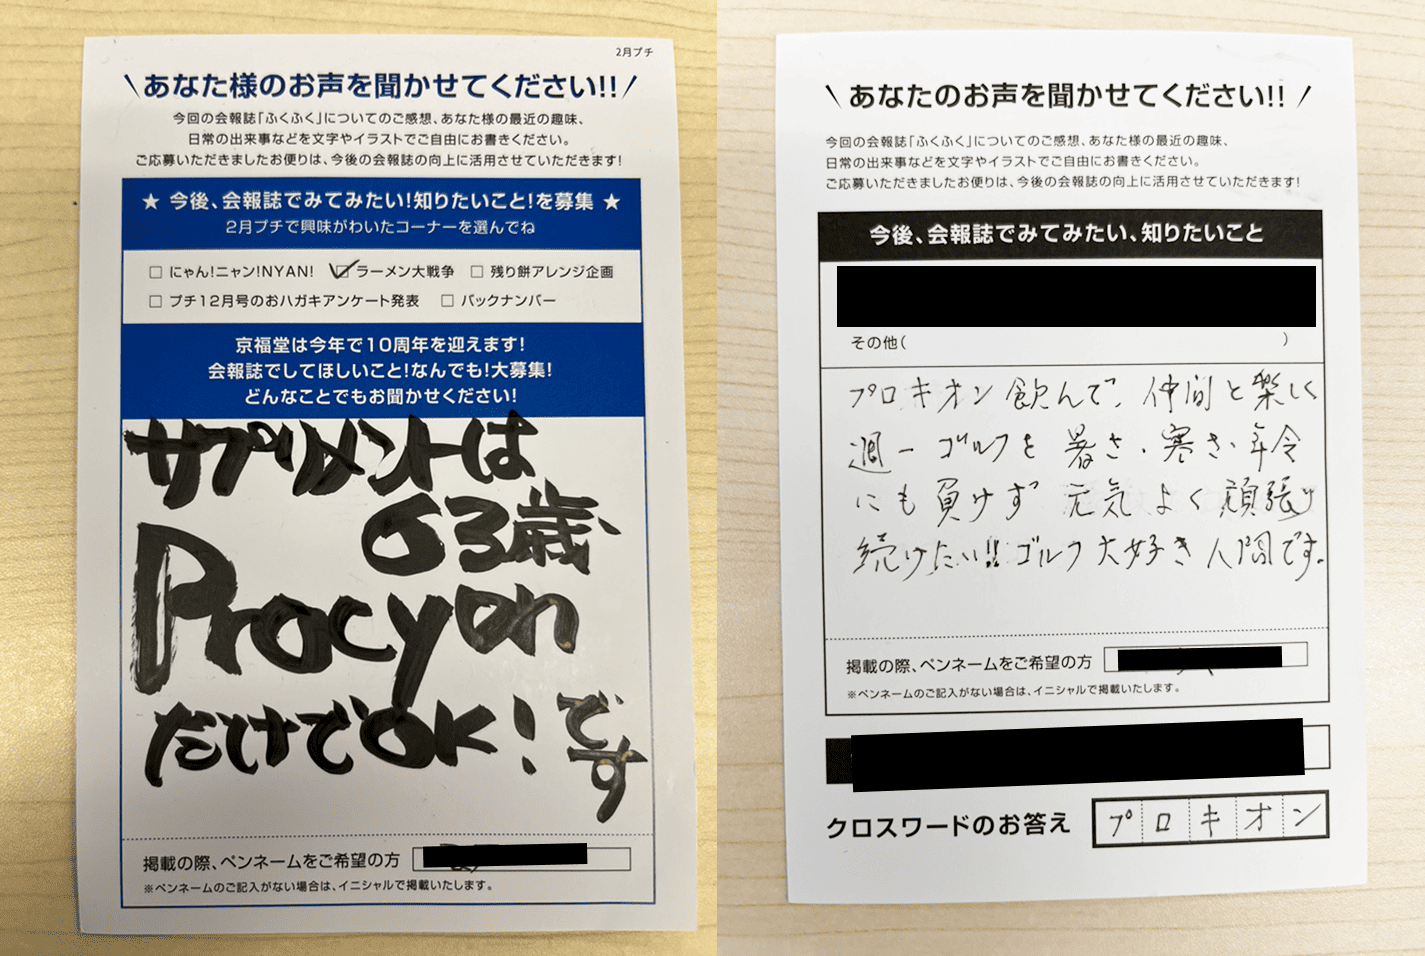 2月プチ
\あなた様のお声を聞かせてください!!/
今回の会報誌「ふくふく」についてのご感想、あなた様の最近の趣味、
日常の出来事などを文字やイラストでご自由にお書きください。
ご応募いただきましたお便りは、今後の会報誌の向上に活用させていただきます!
★ 今後、会報誌でみてみたい!知りたいこと!を募集 ★
2月プチで興味がわいたコーナーを選んでね
□ にゃん!ニャン!NYAN! ☑ ラーメン大戦争 □ 残り餅アレンジ企画
□ プチ12月号のおハガキアンケート発表 □ バックナンバー
京福堂は今年で10周年を迎えます!
会報誌でしてほしいこと!なんでも!大募集!
どんなことでもお聞かせください!
サプリメントは
63歳、
Procyon
だけでOK!です
掲載の際、ペンネームをご希望の方
※ペンネームのご記入がない場合は、イニシャルで掲載いたします。
\あなたのお声を聞かせてください!!/
今回の会報誌「ふくふく」についてのご感想、あなた様の最近の趣味、
日常の出来事などを文字やイラストでご自由にお書きください。
ご応募いただきましたお便りは、今後の会報誌の向上に活用させていただきます!
今後、会報誌でみてみたい、知りたいこと
その他( )
プロキオン飲んで、仲間と楽しく
週一ゴルフを暑さ・寒さ・年令
にも負けず元気よく頑張り
続けたい!!ゴルフ大好き人間です。
掲載の際、ペンネームをご希望の方
※ペンネームのご記入がない場合は、イニシャルで掲載いたします。
クロスワードのお答え プロキオン